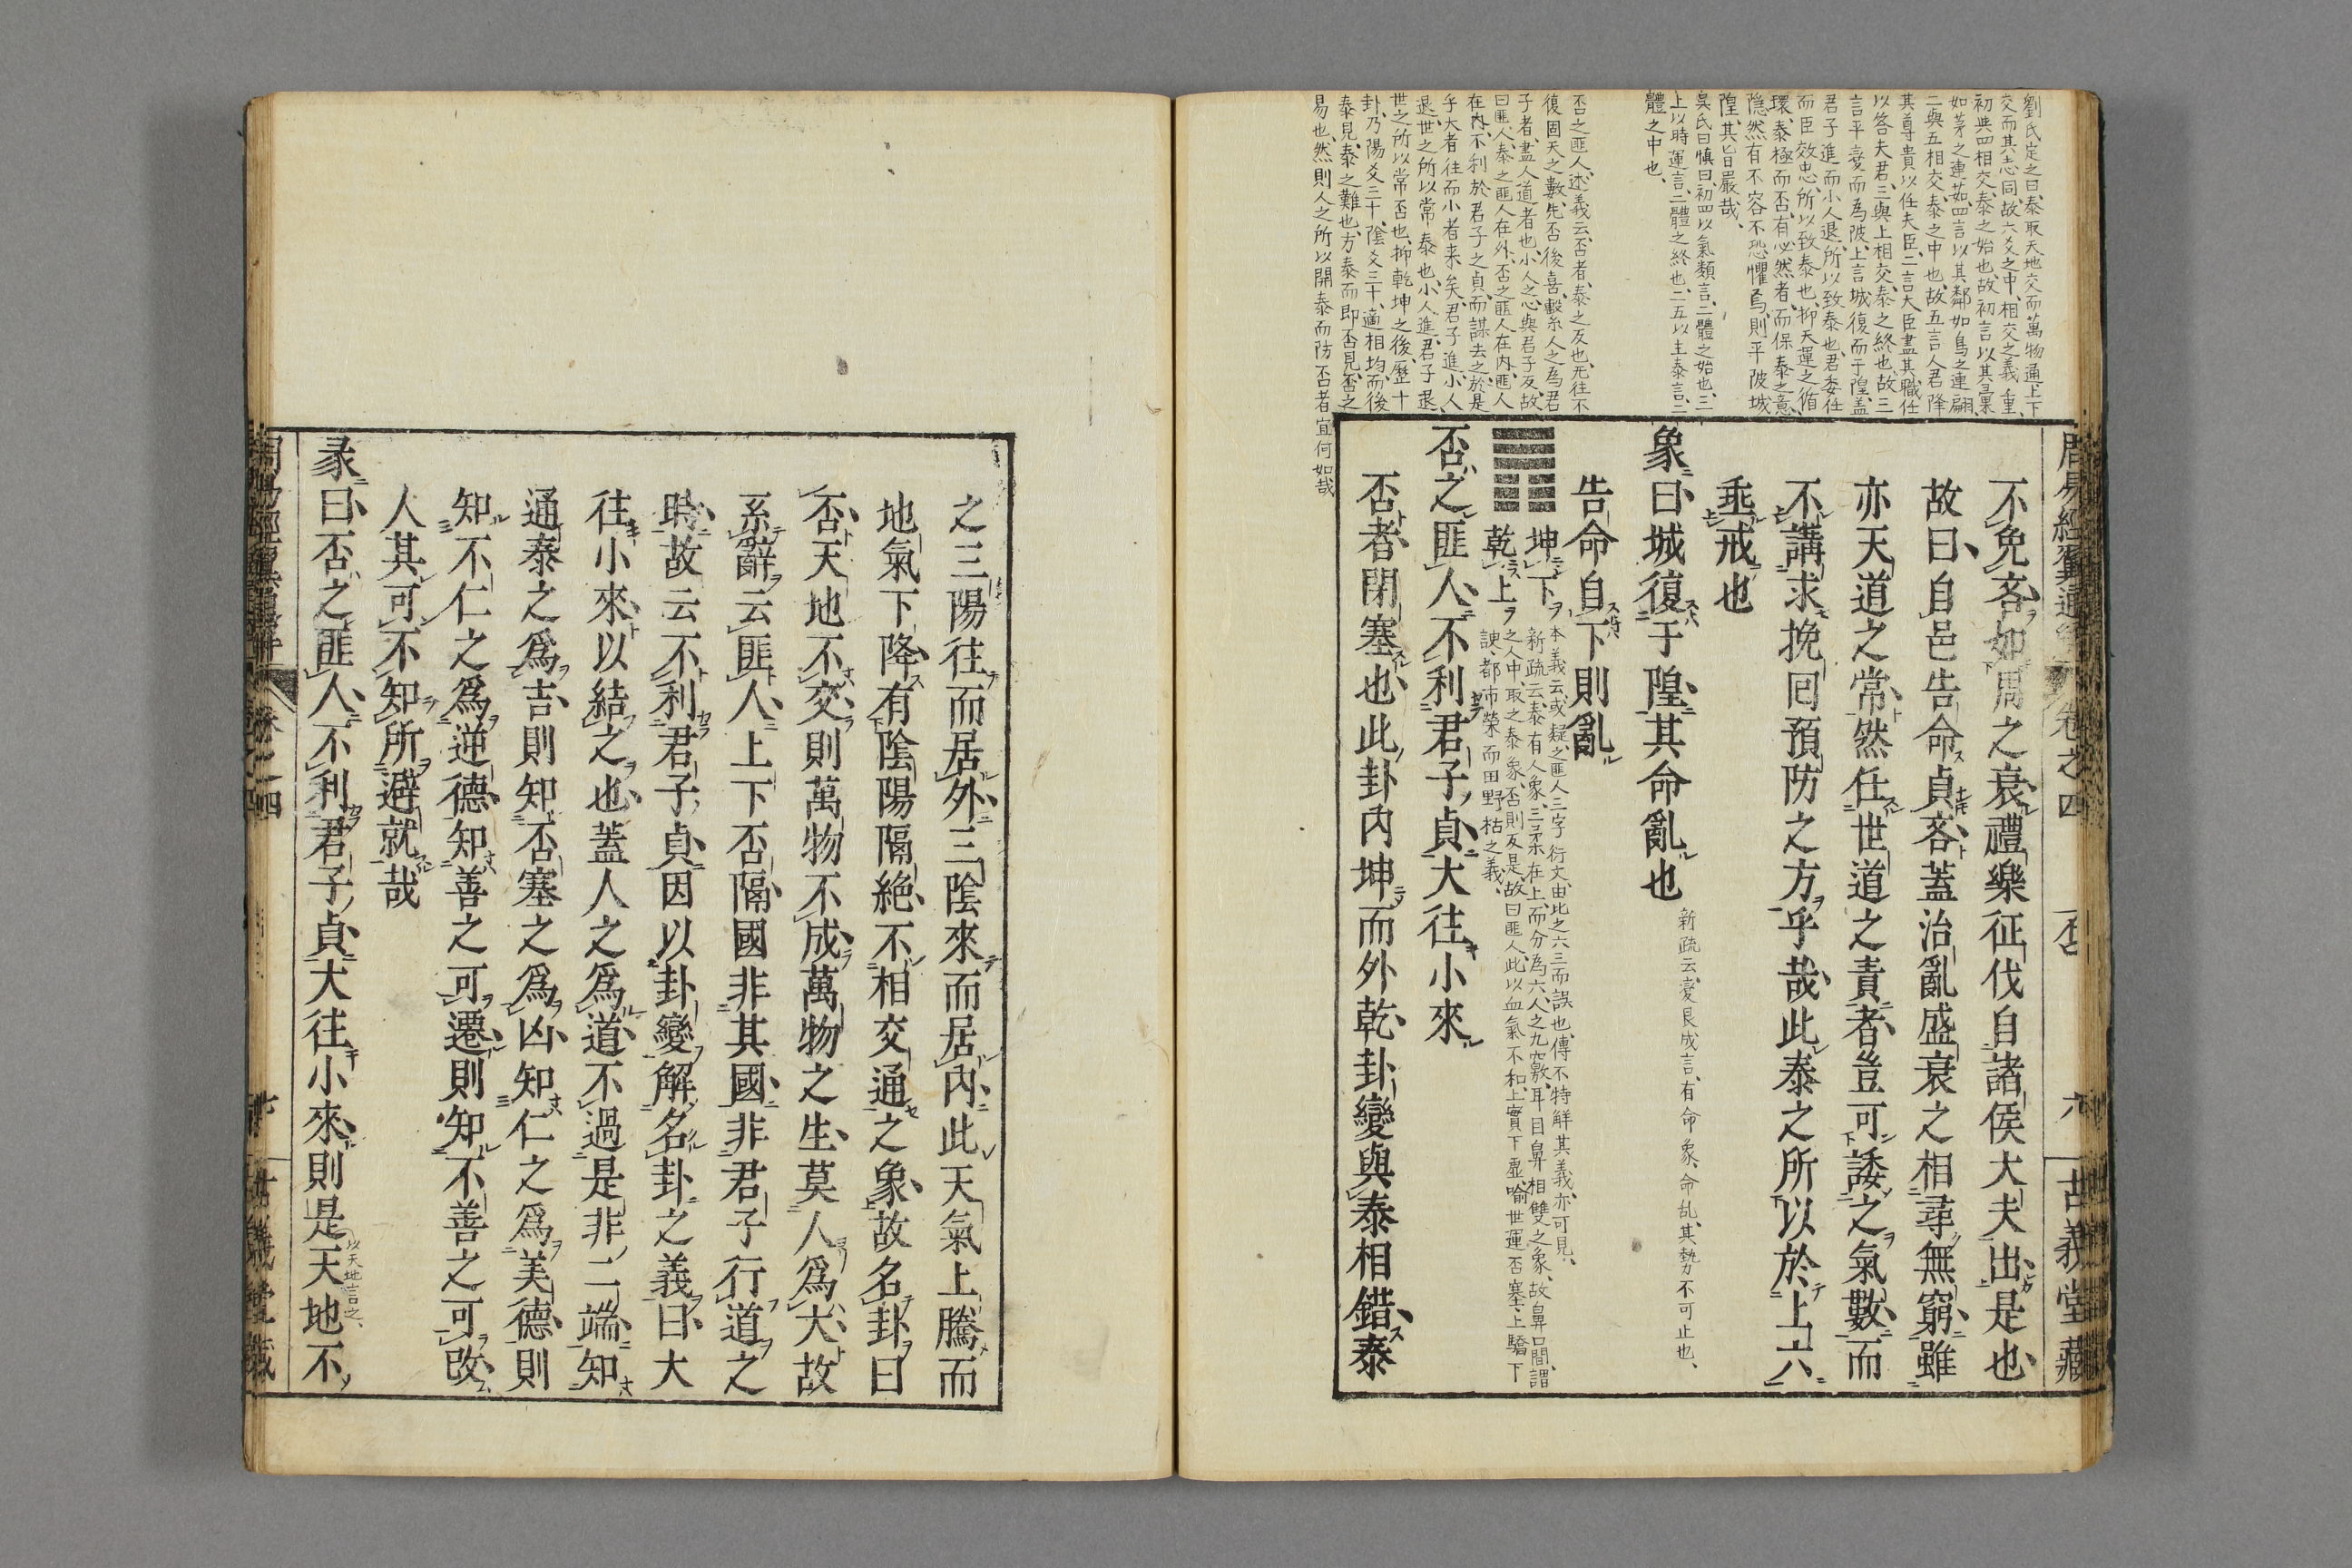 劉氏定之曰、泰取天地交而萬物通、上下
交而其志同、故六爻之中、相交之義重、
初與四相交、泰之始也、故初言以其彙
如茅之連茹、四言以其鄰如鳥之連翩、
二與五相交、泰之中也、故五言人君降
其尊貴以任夫臣、二言大臣盡其職任
以答夫君、三與上相交、泰之終也、故三
言平變而為陂、上言城復而于隍、蓋
君子進而小人退、所以致泰也、君委任
而臣效忠、所以致泰也、抑天運之循
環、泰極而否、有必然者、而保泰之意
隱然有不容不恐懼焉、則平陂城
隍、其旨嚴哉、
吳氏曰慎曰、初四以氣類言、二體之始也、三
上以時運言、二體之終也、二五以主泰言、二
體之中也、
否之匪人、述義云、否者、泰之反也、无往不
復固天之數、先否後喜、繫系人之為君
子者、盡人道者也、小人之心與君子反、故
曰匪人、泰之匪人在外、否之匪人在內、匪人
在內、不利於君子之貞、而謀去之、於是
乎大者往而小者来矣、君子進、小人
退、世之所以常泰也、小人進、君子退、
世之所以常否也、抑乾坤之後、歷十
卦、乃陽爻三十、陰爻三十、適相均、而後
泰見、泰之難也、方泰而即否見、否之
易也、然則人之所以開泰而防否者宜何如哉
周易經翼通解 卷之四 否 六 古義堂藏
不免吝如周之衰禮樂征伐自諸侯大夫出是也
故曰自邑告命貞吝蓋治亂盛衰之相尋無窮雖
亦天道之常然任世道之責者豈可諉之氣數而
不講求挽回預防之方乎哉此泰之所以於上六
垂戒也
象曰城復于隍其命亂也 新疏云、變艮成言、有命象、命乱、其勢不可止也、
告命自下則亂
坤下 乾上
本義云、或疑之匪人三字衍文、由比之六三而誤也、傳不特解其義、亦可見、
新疏云、泰有人象、三柔在上、而分為六、人之九竅、耳目鼻相雙之象、故鼻口間、謂
之人中、取之泰象、否則反是、故曰匪人、此以血氣不和、上實下虛、喻世運否塞、上驕下
諛、都市榮而田野枯之義、
否之匪人不利君子貞大往小來
否者閉塞也此卦內坤而外乾卦變與泰相錯泰
之三陽往而居外三陰來而居內此天氣上騰而
地氣下降有陰陽隔絕不相交通之象故名卦曰
否天地不交則萬物不成萬物之生莫人為大故
系辭云匪人上下否隔國非其國非君子行道之
時故云不利君子貞因以卦變解名卦之義曰大
往小來以結之也蓋人之為道不過是非二端知
通泰之為吉則知否塞之為凶知仁之為美德則
知不仁之為逆德知善之可遷則知不善之可改
人其可不知所避就哉
彖曰否之匪人不利君子貞大往小來則是天地不 以天地言之、
周易經翼通解 卷之四 古義堂藏